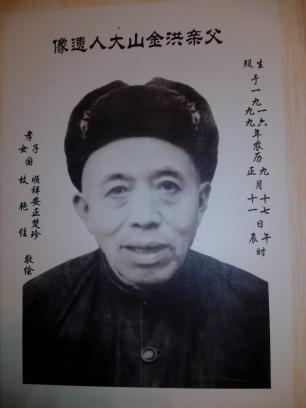 父亲洪金山大人遗像
生于一九一六年农历九月十七日午时
殁 九九 正 十一 辰
子 顺祥安正楚珍
孝女国 枝艳住 敬绘